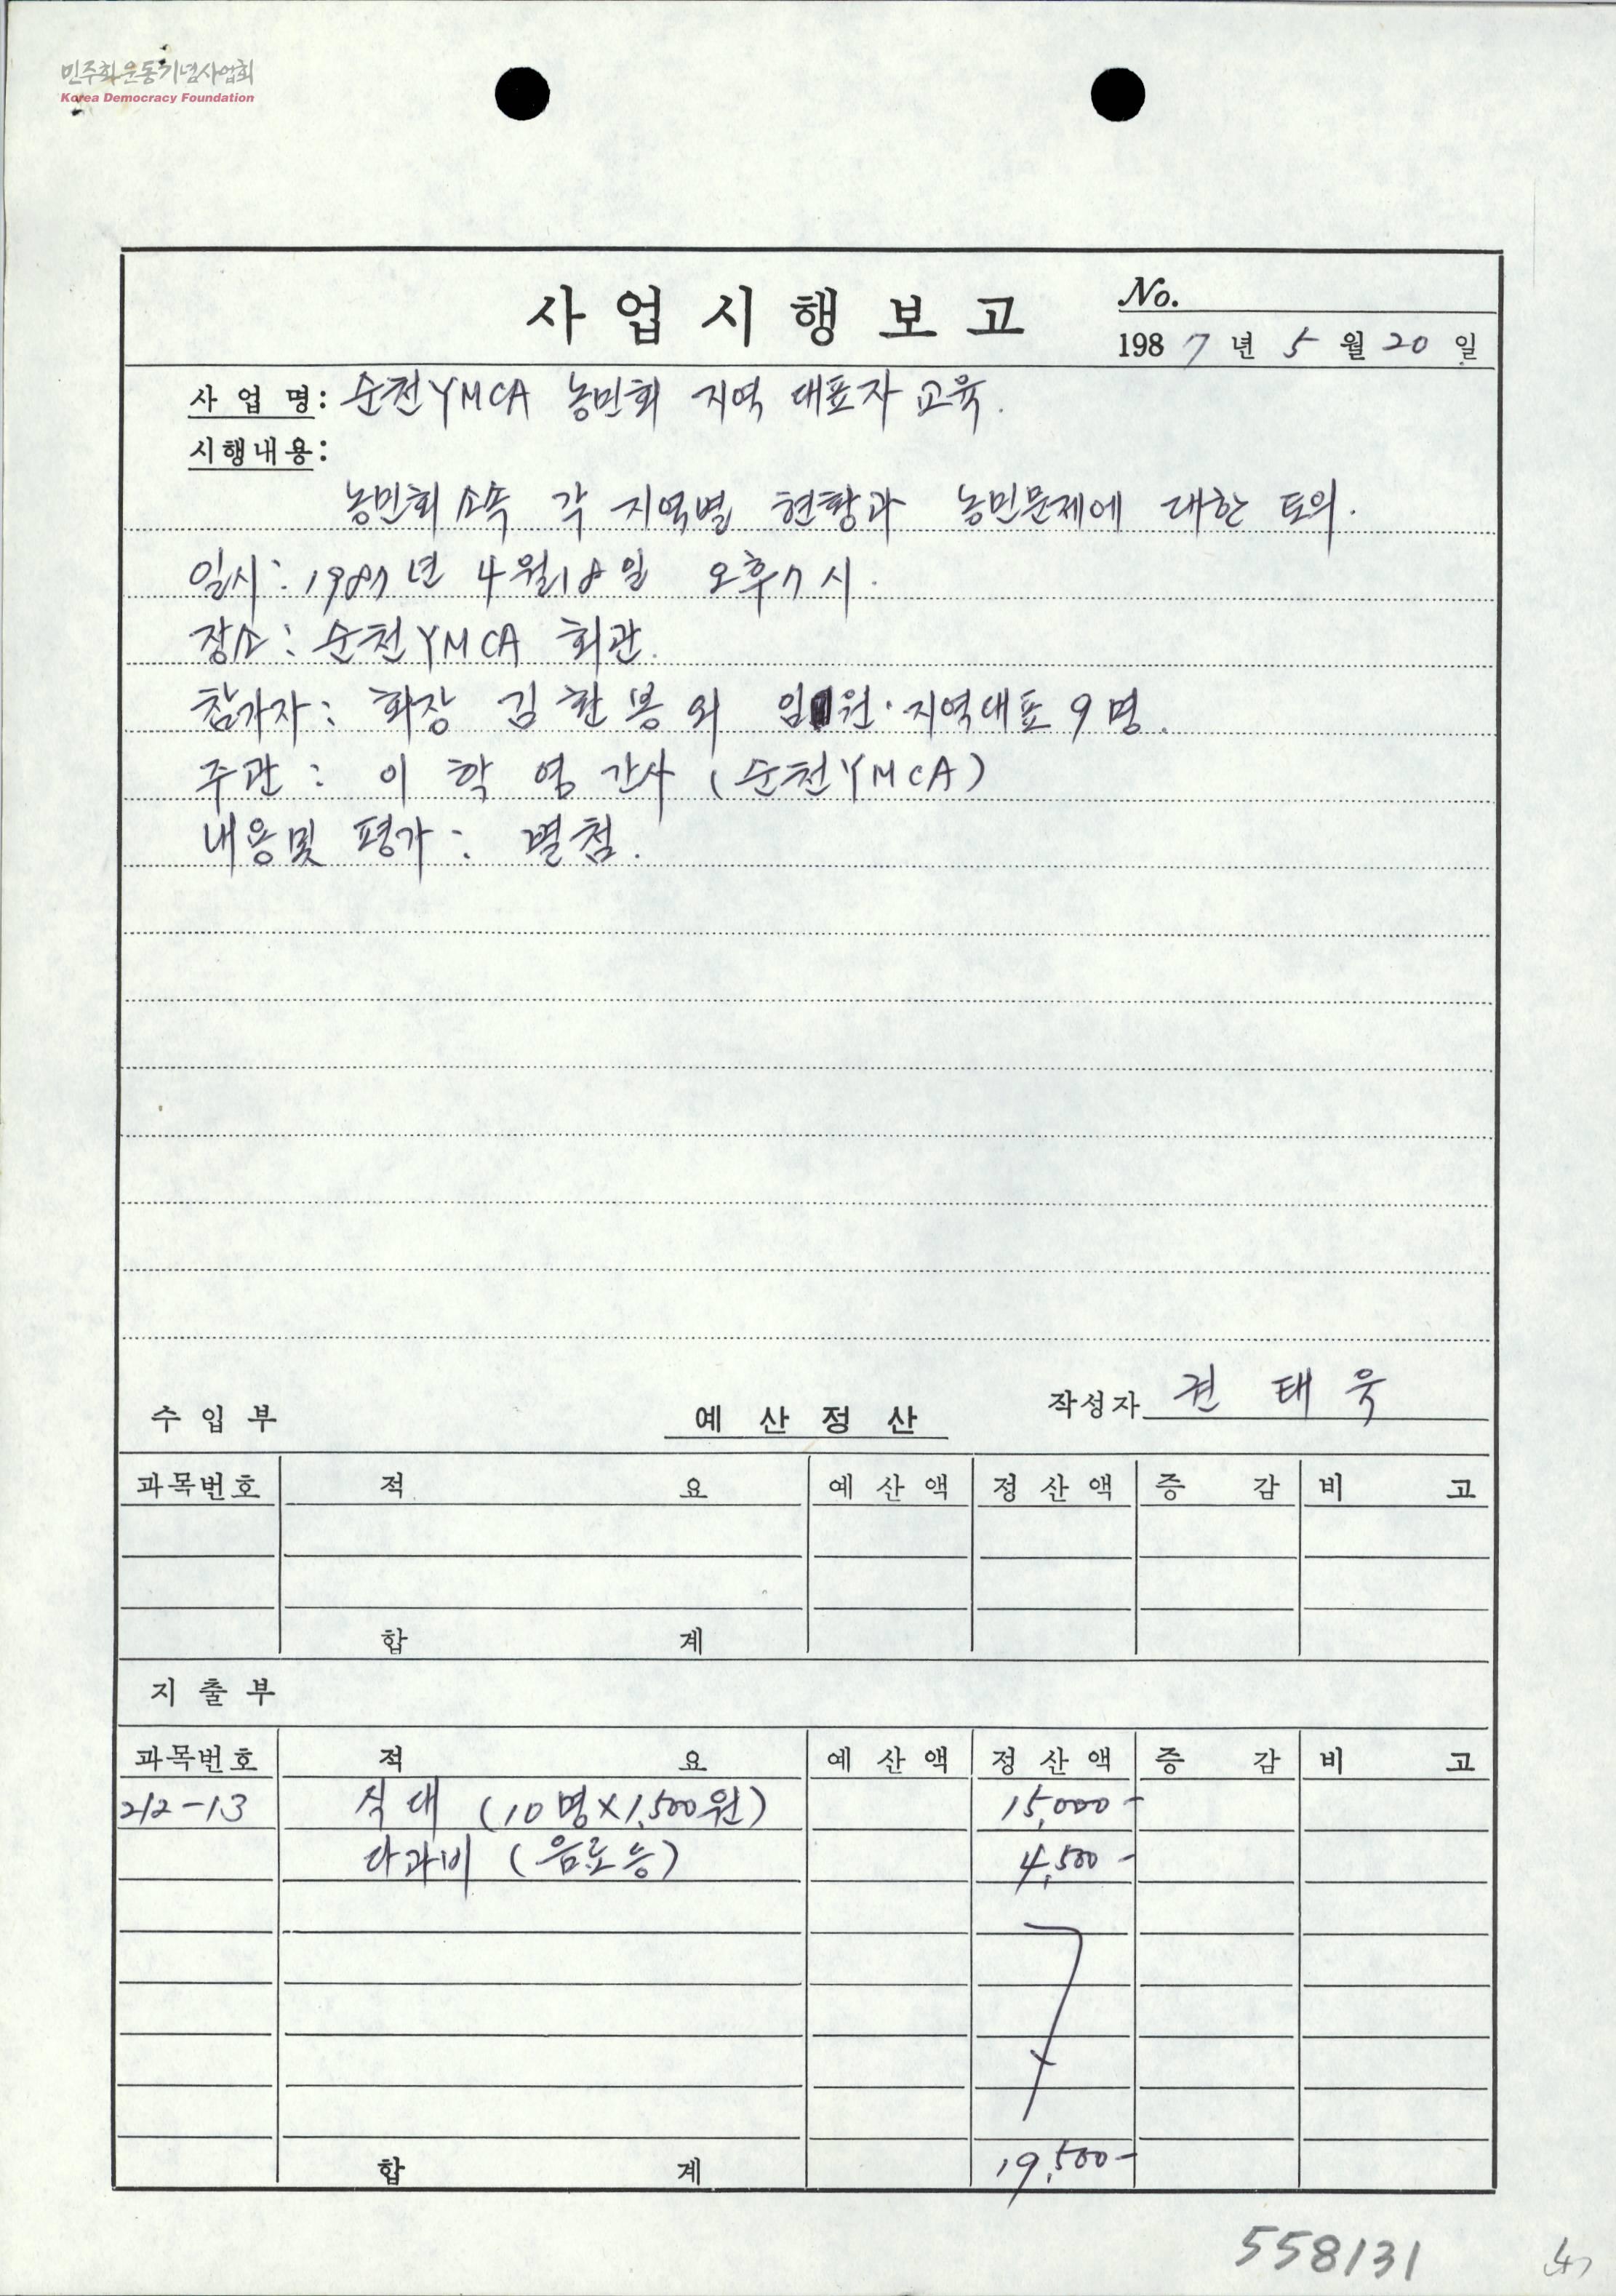 민주화운동기념사업회
Korea Democracy Foundation
사업시행보고
No.
1987년 5월 20일
사업명: 순천YMCA 농민회 지역 대표자 교육.
시행내용:
농민회 소속 각 지역별 현황과 농민문제에 대한 토의.
일시: 1987년 4월18일 오후7시.
장소: 순천YMCA 회관.
참가자: 회장 김환봉외 임원·지역대표 9명.
주관: 이학영간사 (순천YMCA)
내용및 평가: 별첨.
작성자 권태욱
수입부 예산정산
과목번호 적요 예산액 정산액 증감 비고
합계
지출부
과목번호 적요 예산액 정산액 증감 비고
212-13 식대 (10명×1,500원) 15,000-
다과비 (음료등) 4,500-
합계 19,500-
558131